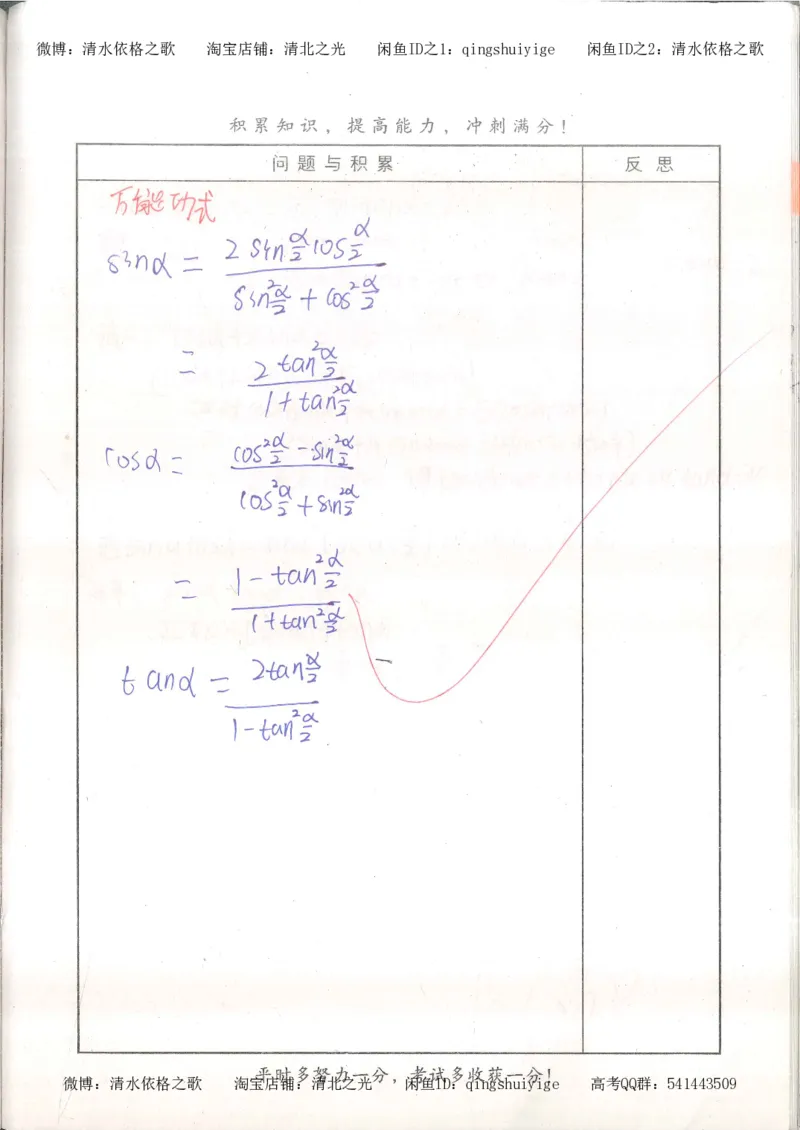 微博：清水依格之歌 淘宝店铺：清北之光 闲鱼ID之1：qingshuiyige 闲鱼ID之2：清水依格之歌
积累知识，提高能力，冲刺满分！
问题与积累 反思
万能功式
sinα = (2 sin α/2 cos α/2) / (sin² α/2 + cos² α/2)
= (2 tan² α/2) / (1 + tan² α/2)
cosα = (cos² α/2 - sin² α/2) / (cos² α/2 + sin² α/2)
= (1 - tan² α/2) / (1 + tan² α/2)
tanα = (2tan α/2) / (1 - tan² α/2)
平时多努力一分，考试多收获一分！
微博：清水依格之歌 淘宝店铺：清北之光 闲鱼ID：qingshuiyige 高考QQ群：541443509